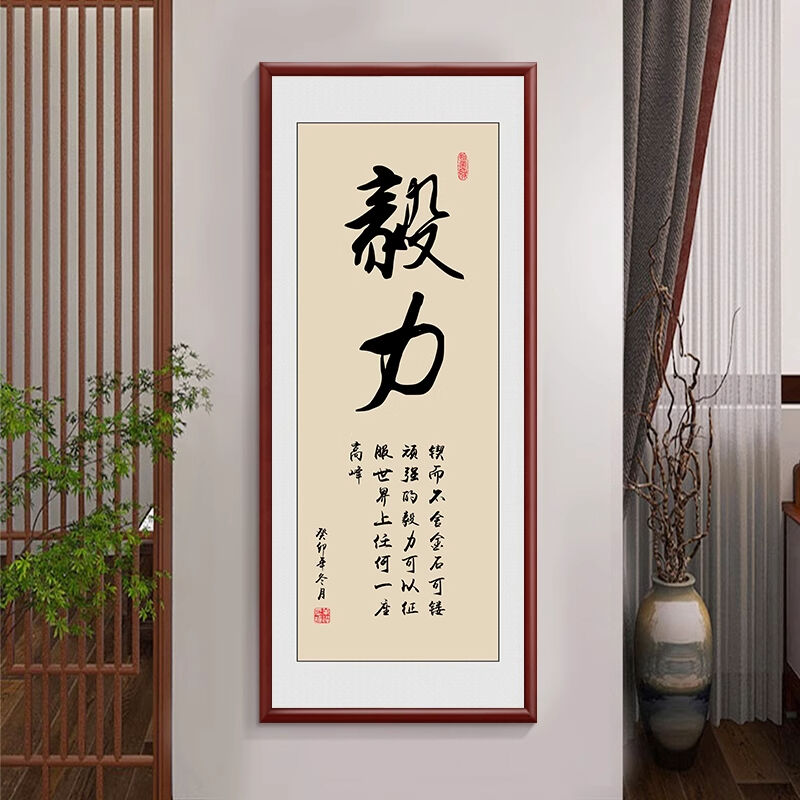 毅力
锲而不舍金石可镂
顽强的毅力可以征
服世界上任何一座
高峰
癸卯年冬月